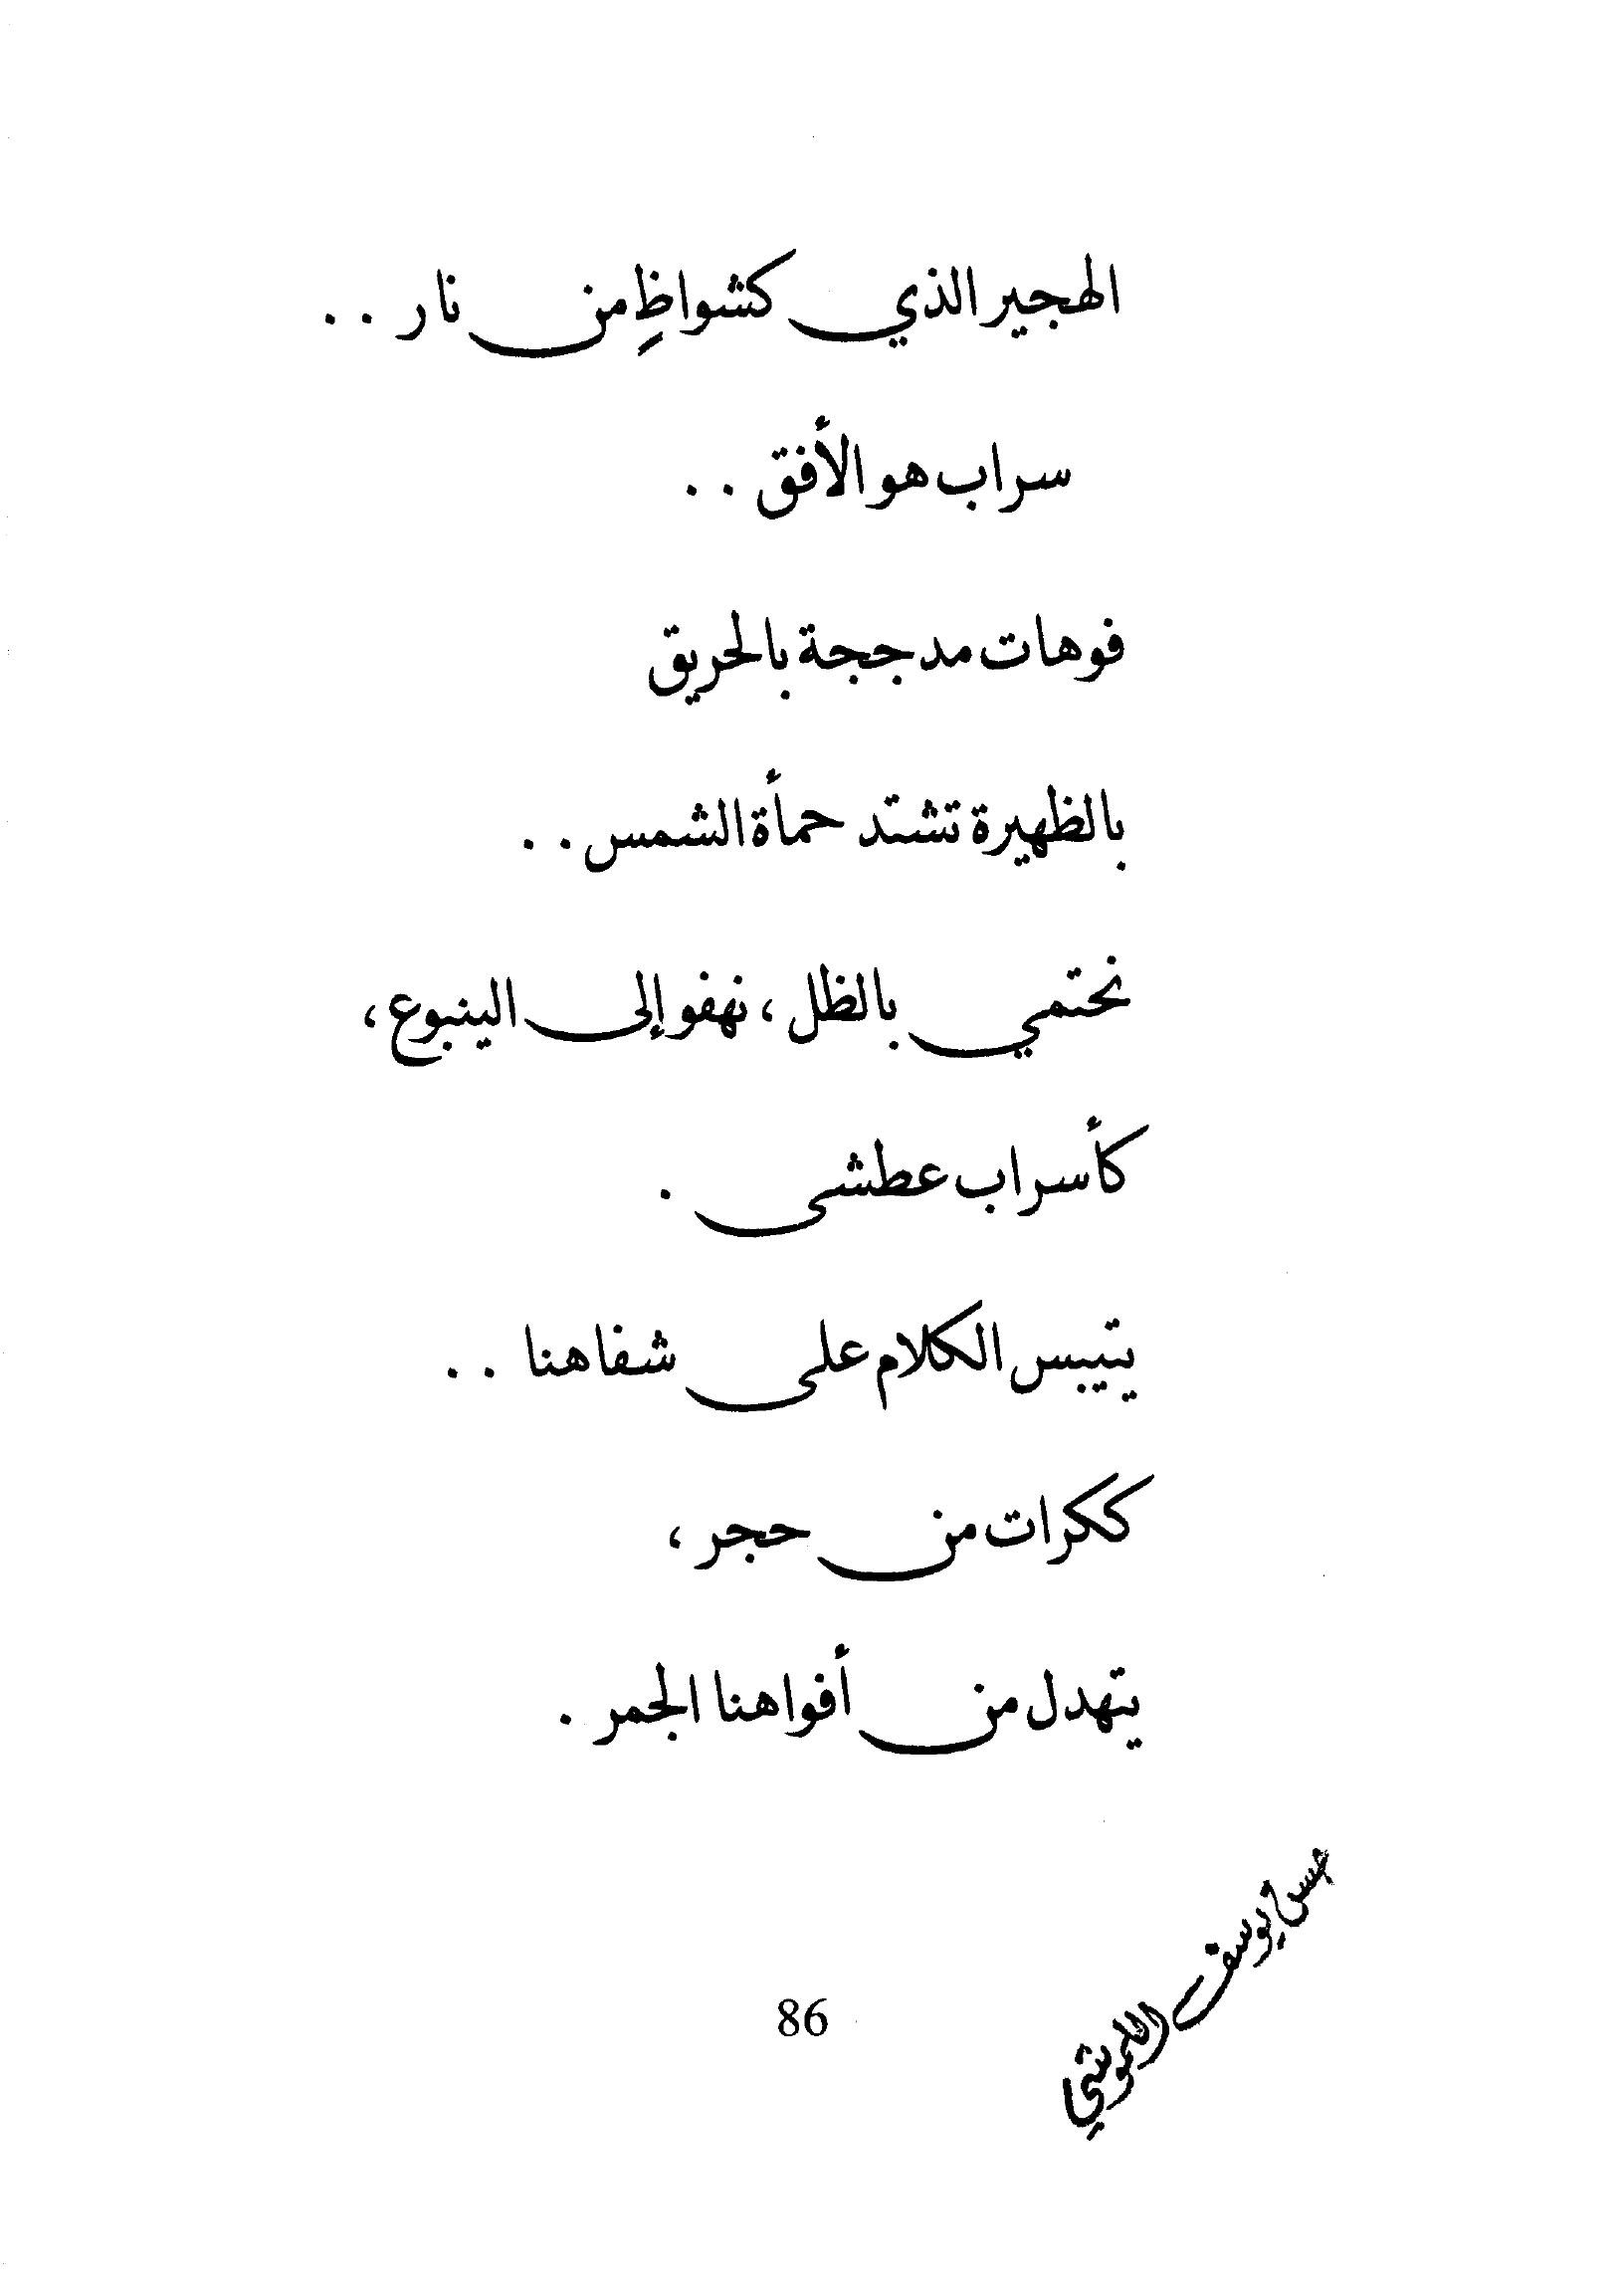 الهجير الذي كشواظِ من نار . .
سراب هو الأفق . .
فوهات مدججة بالحريق
بالظهيرة تشتد حمأة الشمس . .
نحتمي بالظل ، نهفو إلى الينبوع ،
كأسراب عطشى .
يتيبس الكلام على شفاهنا . .
ككرات من حجر ،
يتهدل من أفواهنا الجمر .
يوسف
86